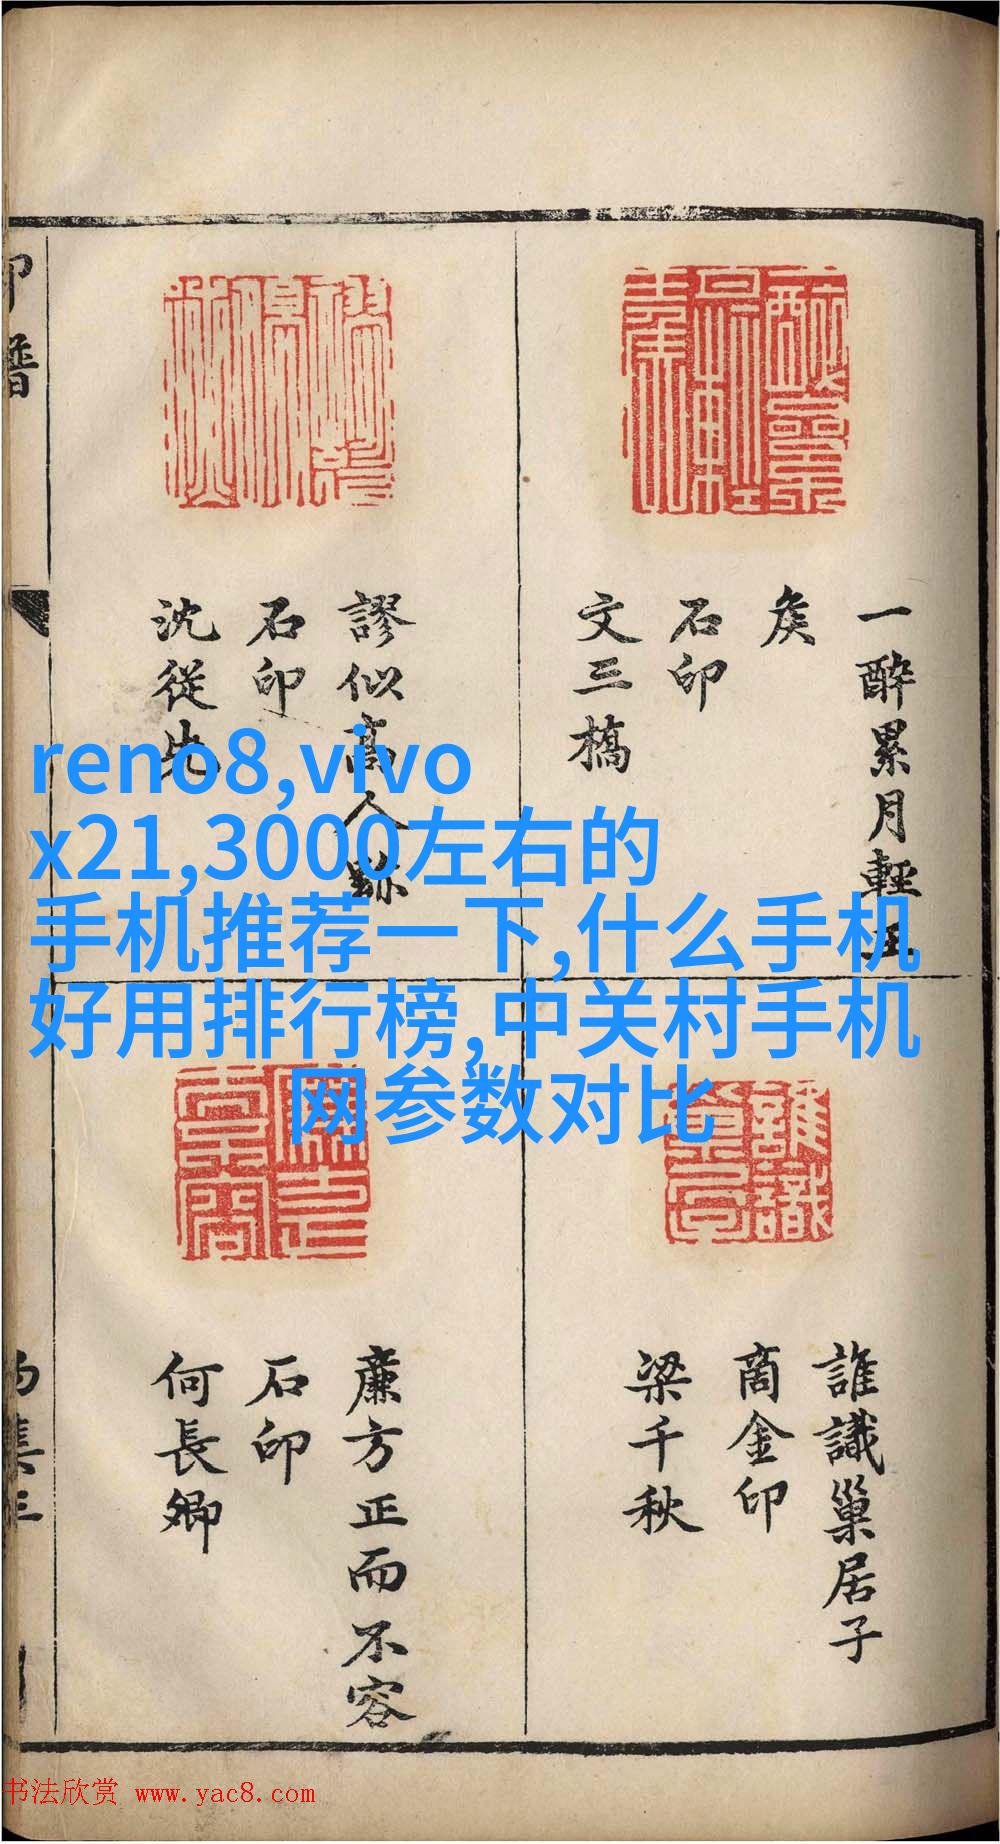 一醉累月輕王
矦
石印
文三橋
謬似高人跡
石印
沈從先
reno8,vivo
x21,3000左右的
手机推荐一下,什么手机
好用排行榜,中关村手机
网参数对比
誰識巢居子
商金印
梁千秋
廉方正而不容
石印
何長卿
印譜
书法欣赏 www.yac8.com